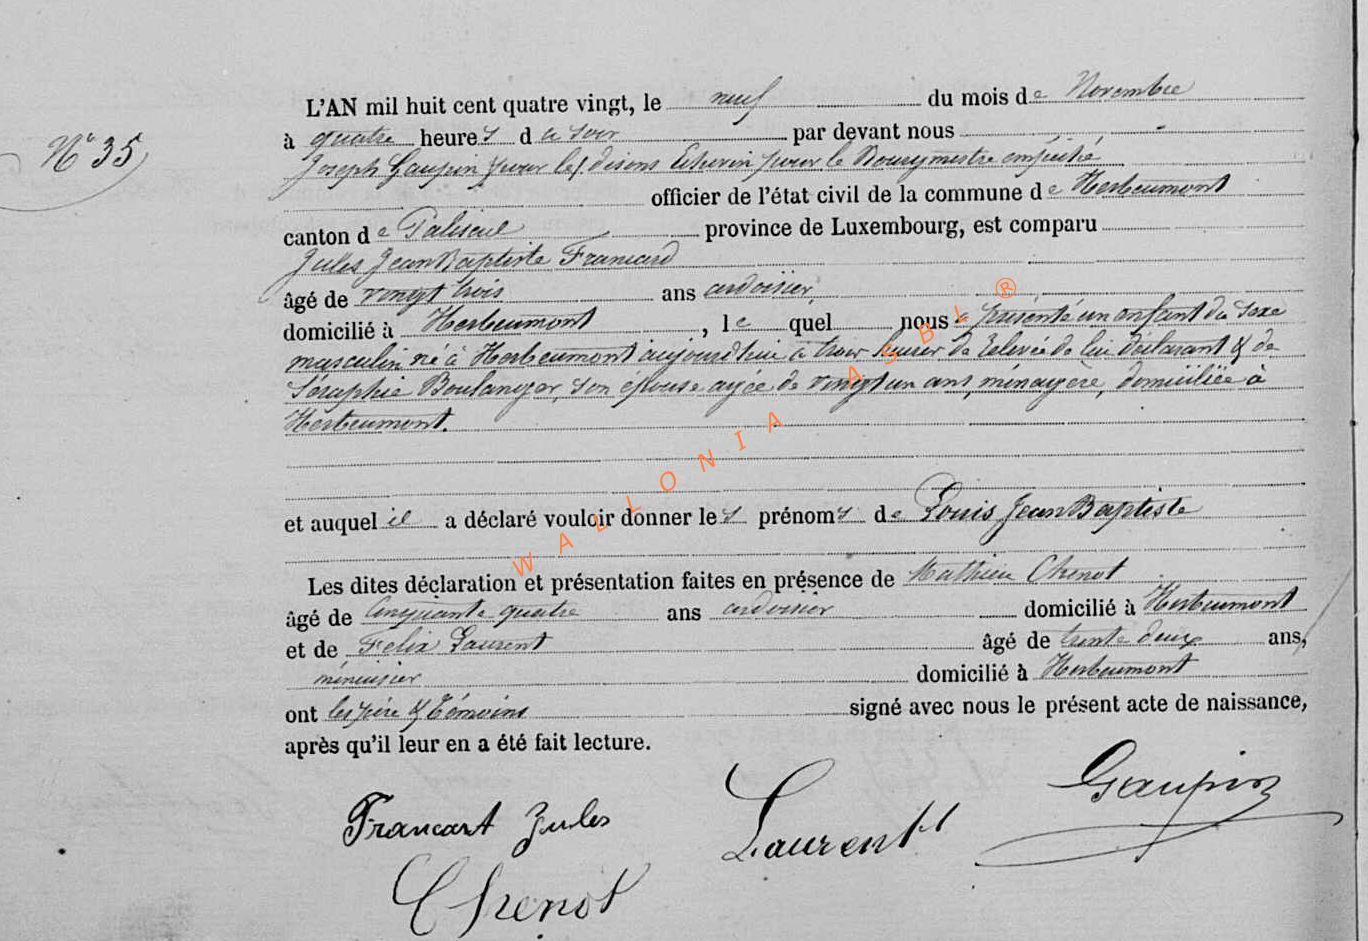 L'AN mil huit cent quatre vingt, le neuf du mois de Novembre
N° 35
à quatre heures du soir par devant nous
Joseph Gaupin pour le, disons Echevin pour le Bourgmestre empêché
officier de l'état civil de la commune de Herbeumont
canton de Paliseul province de Luxembourg, est comparu
Jules Jean Baptiste Francard
âgé de vingt trois ans ardoisier,
domicilié à Herbeumont, lequel nous a présenté un enfant du sexe
masculin né à Herbeumont aujourd'hui à trois heures de relevée de lui déclarant & de
Séraphie Boulanger, son épouse agée de vingt un ans, ménagère, domiciliée à
Herbeumont.
et auquel il a déclaré vouloir donner les prénoms de Louis Jean Baptiste
Les dites déclaration et présentation faites en présence de Mathieu Chenot
âgé de Cinquante quatre ans ardoisier domicilié à Herbeumont
et de Felix Laurent âgé de trente deux ans,
menuisier domicilié à Herbeumont
ont les père & témoins signé avec nous le présent acte de naissance,
après qu'il leur en a été fait lecture.
Francart Jules
Laurent
Gaupin
Chenot
WALLONIA ASBL ®